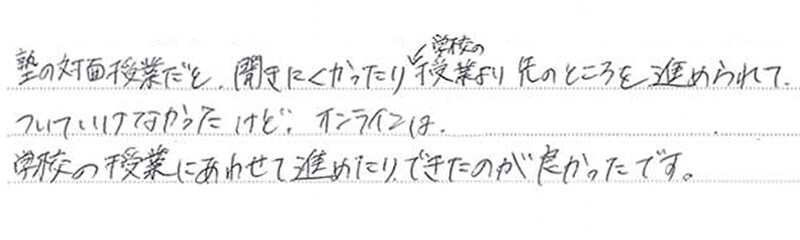 塾の対面授業だと、聞きにくかったり学校の授業より先のところを進められて、
ついていけてなかったけど、オンラインは、
学校の授業にあわせて進めたりできたのが良かったです。